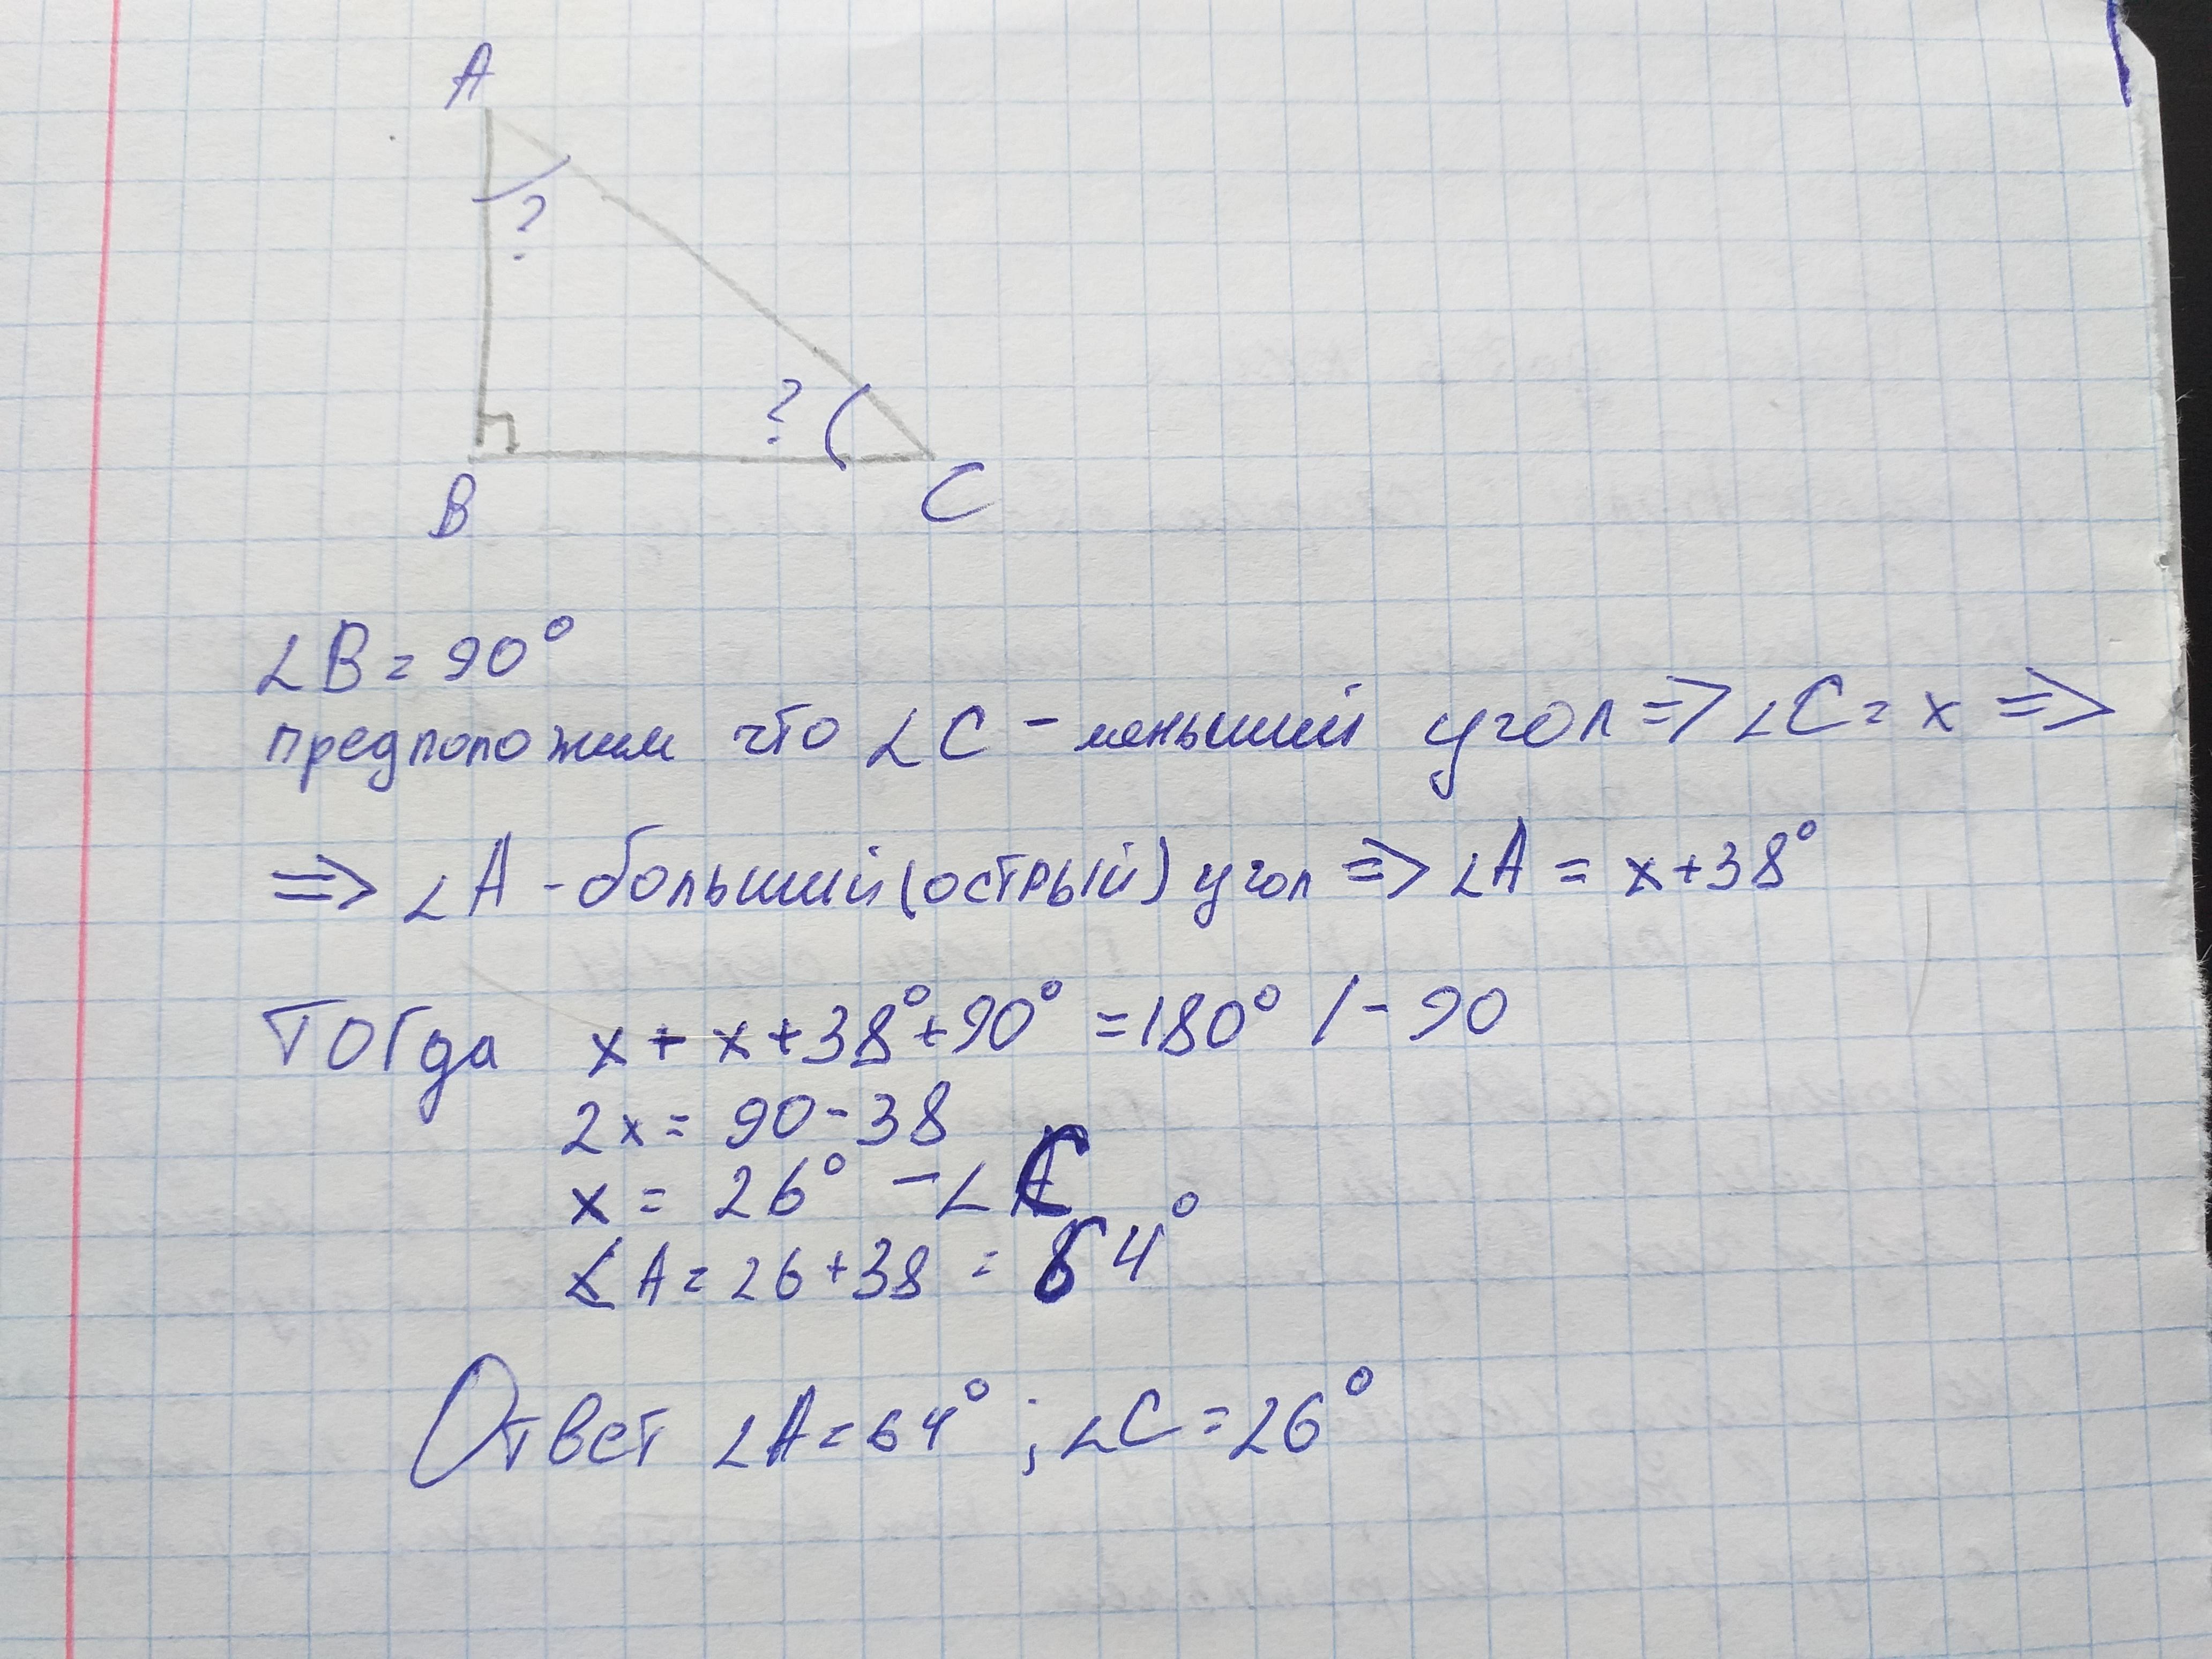 A
?
?
B
C
∠B = 90°
предположим что ∠C - меньший угол => ∠C = x =>
=> ∠A - больший (острый) угол => ∠A = x+38°
Тогда x + x + 38° + 90° = 180° / - 90
2x = 90 - 38
x = 26° - ∠C
∠A = 26 + 38 = 64°
Ответ ∠A = 64° ; ∠C = 26°